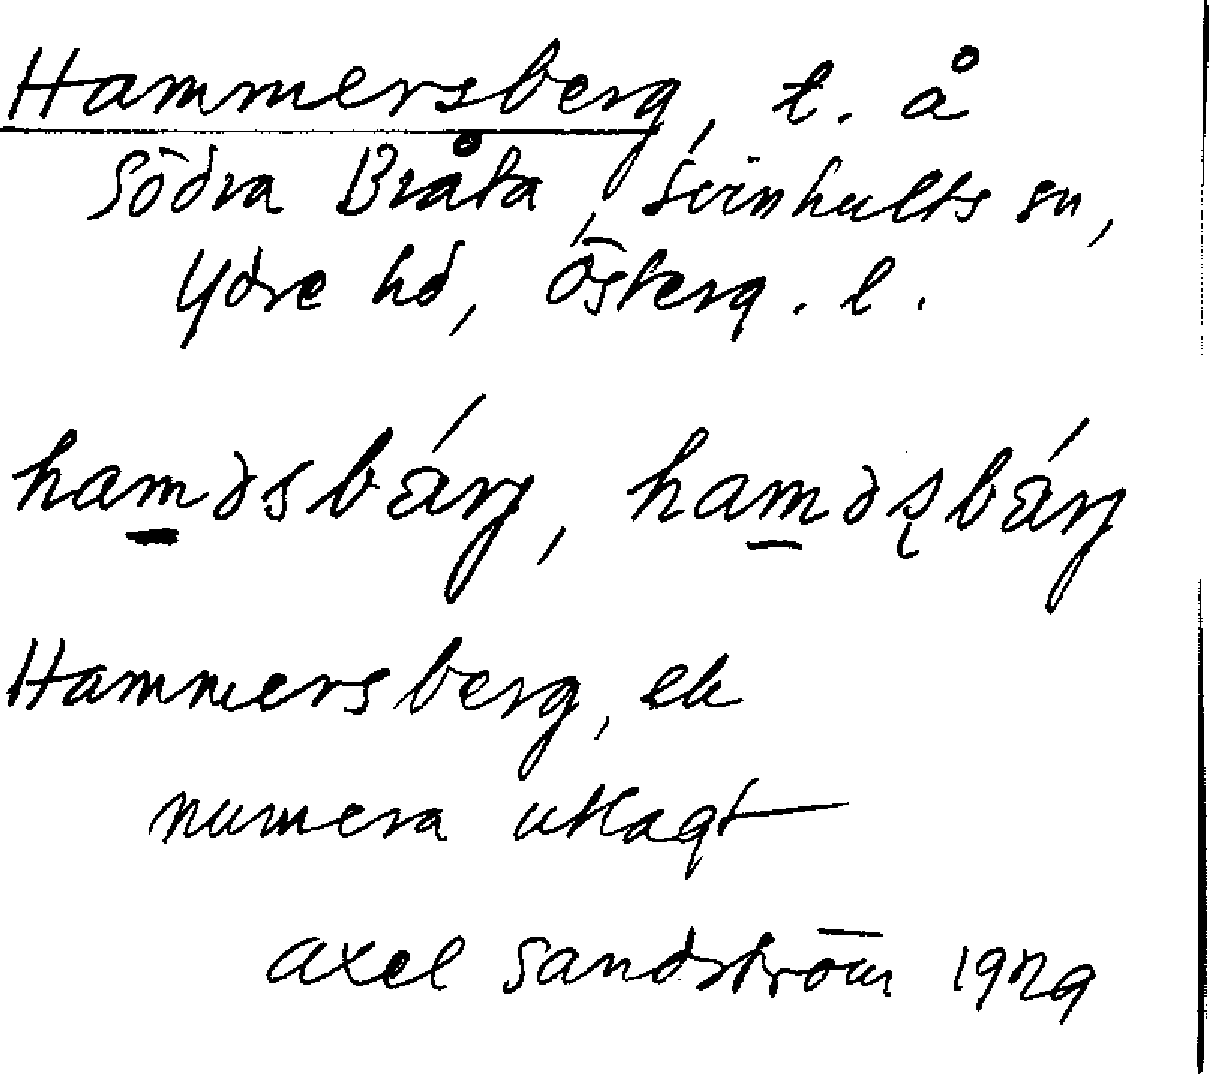 Hammersberg, t. å
Södra Bråta, Svinhults sn,
Ydre hd, Österg. l.
haməsbárj, haməʂbárj
Hammersberg, ek
numera utlagt
Axel Sandström 1929